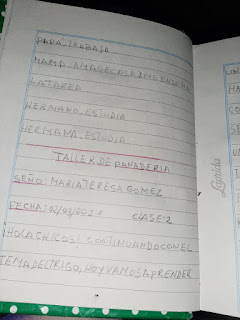 PAPA-TRABAJA
MAMA-AMADECASA
LATAREA
HERMANO-ESTUDIA
HERMANA-ESTUDIA
TALLER DE PANADERIA
SEÑO: MARIA TERESA GOMEZ
FECHA: 02/09/2021 CLASE: 2
¡HOLA CHICOS! CONTINUANDO CON EL
TEMA DEL TRIGO, HOY VAMOS A PRENDER
Lápida